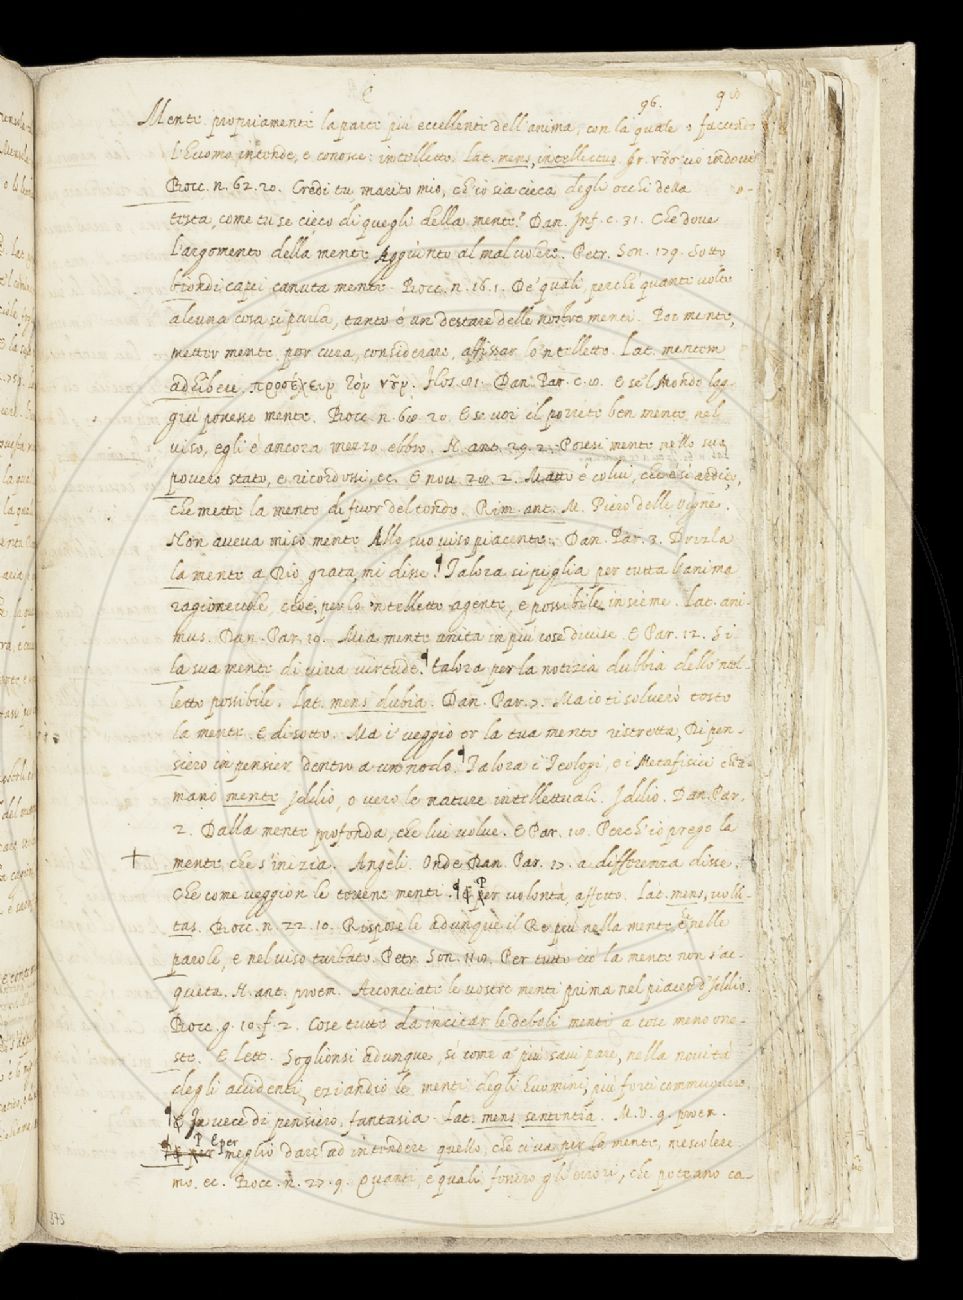 96.
Mente. propriamente la parte più eccellente dell'anima, con la quale
l'Euomo intende, e conosce: intelletto. Lat. mens, intellectus. Gr.
Bocc. n. 62. 20. Credi tu marito mio, ch'io sia cieca degli occhi della
testa, come tu se cieco di quegli della mente? Dan. Inf. c. 31. Che dove
l'argomento della mente Aggiunto al mal volere. Petr. Son. 179. Sotto
biondi capei canuta mente. Bocc. n. 16. 1. De' quali, perchè quante volte
alcuna cosa si parla, tanto è un destare delle nostre menti. Por mente,
metter mente. por cura, considerare, affissar lo 'ntelletto. Lat. mentem
adhibere, προσέχειν τὸν νοῦν. Dan. Par. c. 8. E se 'l Mondo lag-
giù ponesse mente. Bocc. n. 60. 20. E se voi il porrete ben mente nel
viso, egli è ancora mezzo ebbro. N. ant. 29. 2. Posesi mente nello suo
povero stato, e ricordossi, ec. E nov. 28. 2. Matto è colui, che è sì ardito,
che mette la mente di fuor del tondo. Rim. ant. M. Piero delle Vigne.
Non aveva miso mente Allo suo viso piacente. Dan. Par. 3. Drizza
la mente a Dio grata, mi disse. Talora si piglia per tutta l'anima
ragionevole, cioè, per lo 'ntelletto agente, e possibile insieme. Lat. ani-
mus. Dan. Par. 10. Mia mente unita in più cose divise. E Par. 12. Sì
la sua mente di viva virtude. Talora per la notizia dubbia dello 'ntel-
letto possibile. Lat. mens dubia. Dan. Par. 7. Ma io ti solverò tosto
la mente. E di sotto. Ma i' veggio or la tua mente ristretta, Di pen-
siero in pensier dentro a un nodo. Talora i Teologi, e i Metafisici chia-
mano mente Iddio, o vero le nature intellettuali. Iddio. Dan. Par.
2. Dalla mente profonda, che lui volve. E Par. 18. Perch'io prego la
mente, che s'inizia. Angeli. Onde Dan. Par. 17. a differenza disse.
Che come veggion le terrene menti. Per volontà, affetto. Lat. mens, volun-
tas. Bocc. n. 22. 10. Rispose le adunque il Re più nella mente, che nelle
parole, e nel viso turbato. Petr. Son. 118. Per tutto ciò la mente non s'ac-
queta. N. ant. proem. Acconciate le vostre menti prima nel piacer d'Iddio.
Bocc. g. 10. f. 2. Cose tutte da incitar le deboli menti a cose meno one-
ste. E Lett. Soglionsi adunque, sì come a' più savi pare, nella novità
degli accidenti, eziandio le menti degli Euomini più forti commuovere.
In vece di pensiero, fantasia. Lat. mens sententia. M. V. 9. proem.
E per meglio dare ad intendere quello, che ci va per la mente, mescolere-
mo. ec. Bocc. n. 27. 9. Quanti, e quali fossero gli errori, che poteano ca-
375